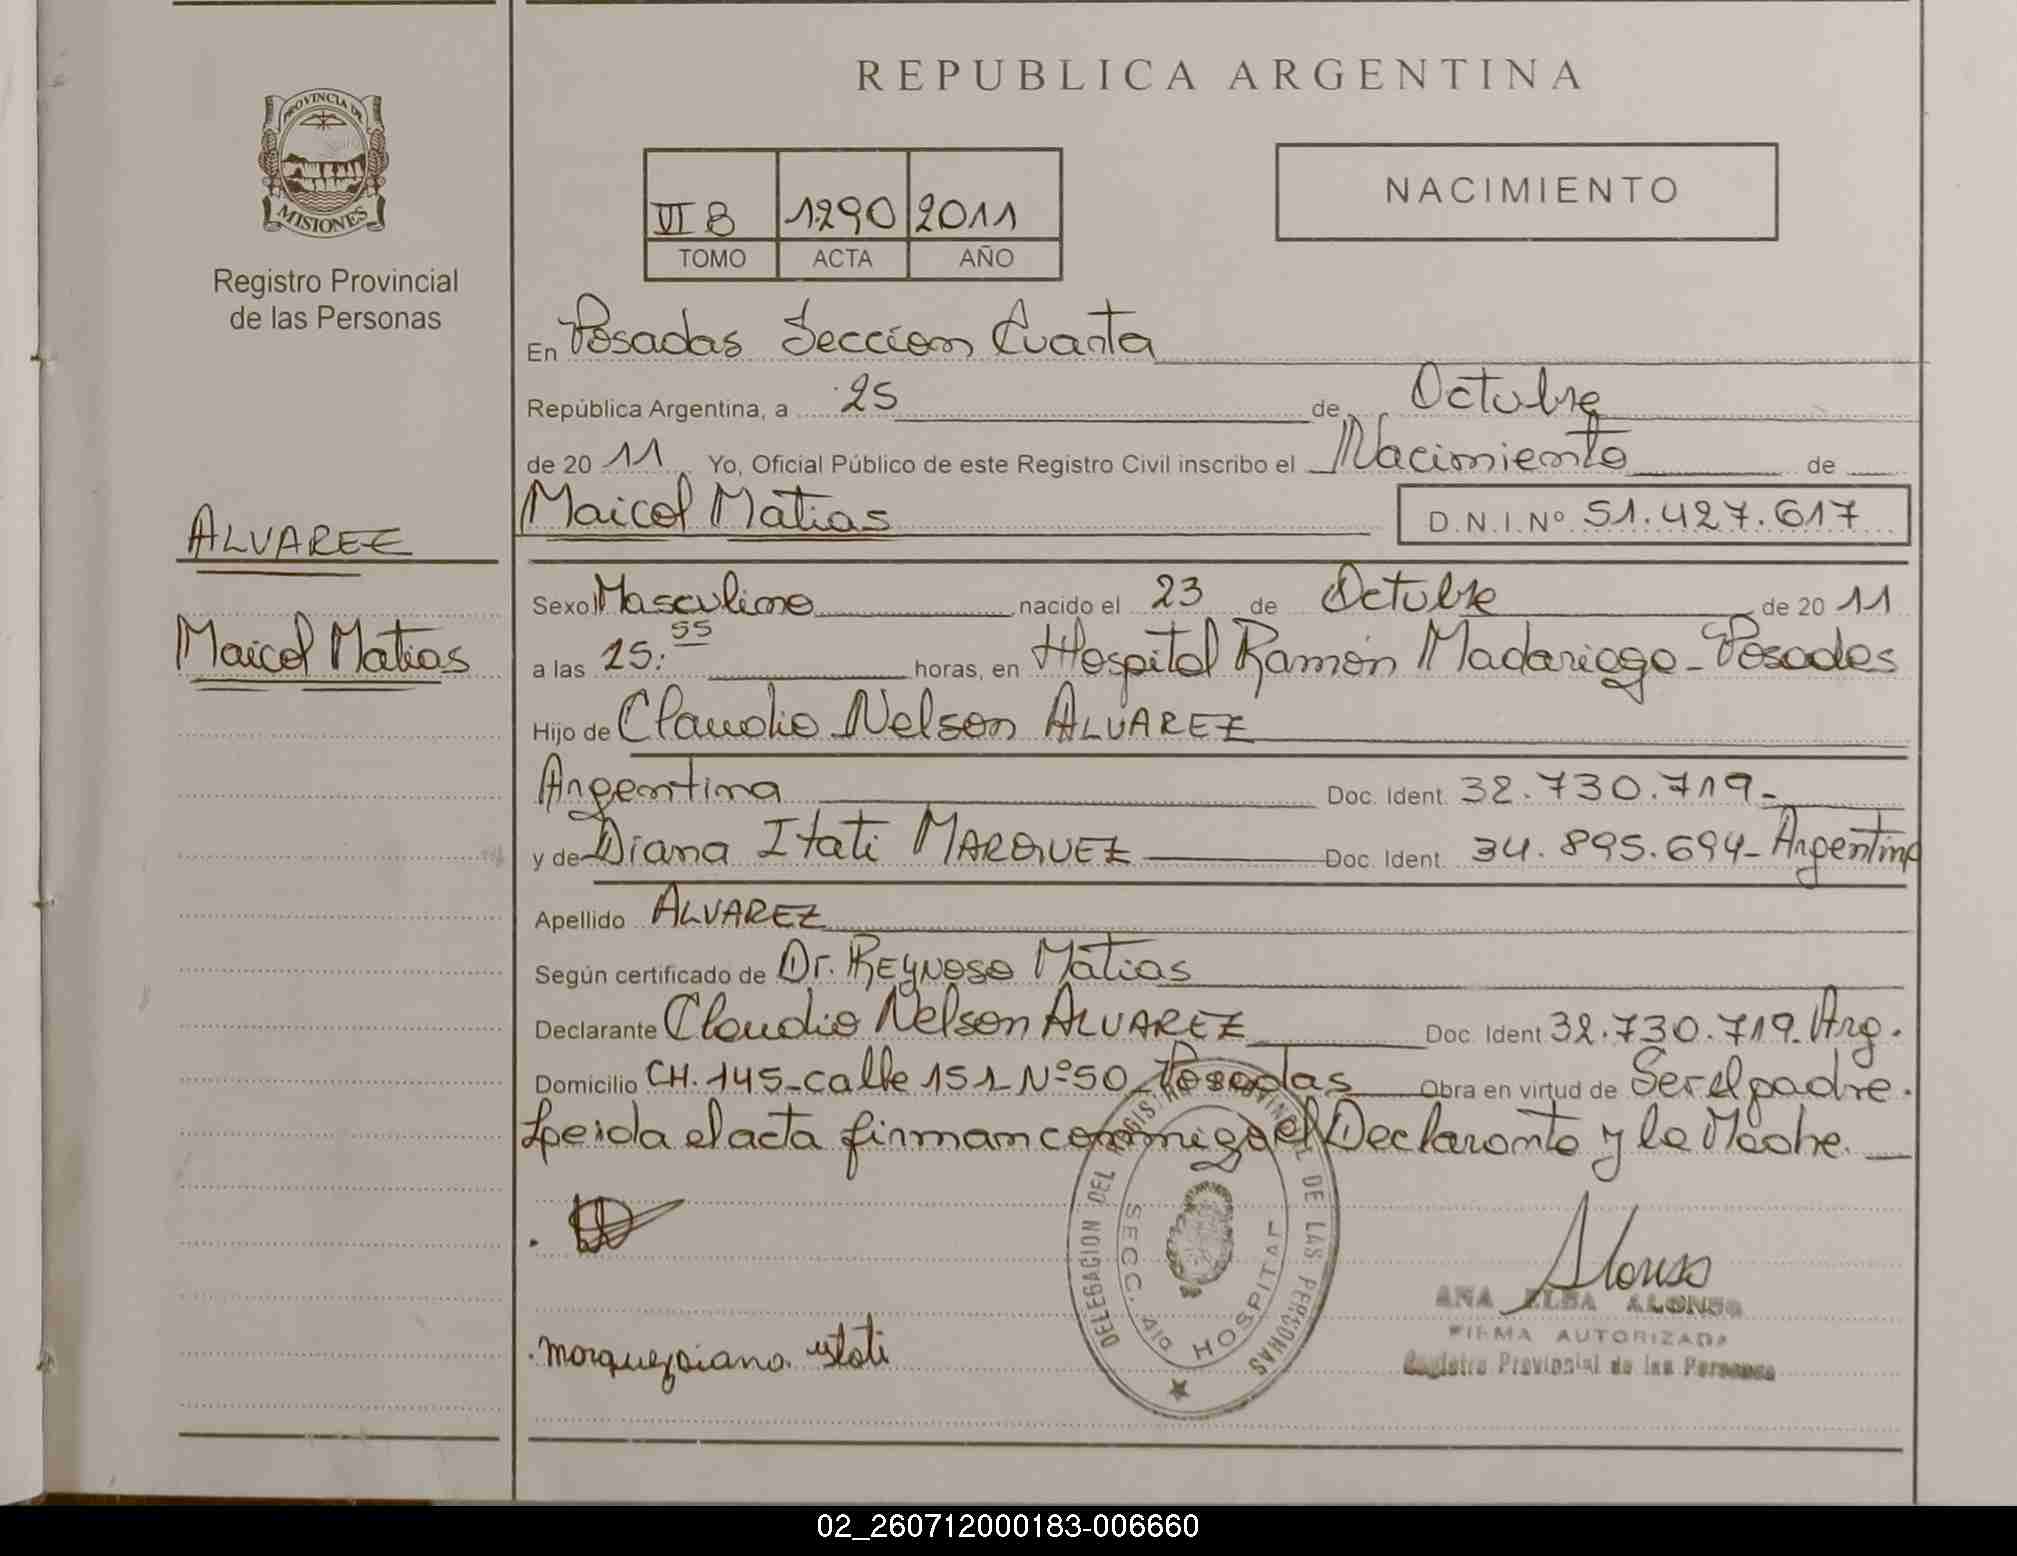 REPUBLICA ARGENTINA
PROVINCIA DE
MISIONES
Registro Provincial
de las Personas
NACIMIENTO
VI B 1290 2011
TOMO ACTA AÑO
En Posadas Seccion Cuarta
República Argentina, a 25 de Octubre
de 20 11 Yo, Oficial Público de este Registro Civil inscribo el Nacimiento de
Maicol Matias D.N.I.Nº 51.427.617
ALVAREZ
Maicol Matias
Sexo Masculino nacido el 23 de Octubre de 20 11
a las 15:55 horas, en Hospital Ramón Madariaga - Posadas
Hijo de Claudio Nelson ALVAREZ
Argentina Doc. Ident. 32.730.719-
y de Diana Itati MARQUEZ Doc. Ident. 34.895.694- Argentina
Apellido ALVAREZ
Según certificado de Dr. REYNOSO Matias
Declarante Claudio Nelson ALVAREZ Doc. Ident 32.730.719- Arg.
Domicilio CH. 145- calle 151- Nº 50- Posadas Obra en virtud de Ser el padre.
Leida el acta firman conmigo el Declarante y la Madre.
DELEGACION DEL REGISTRO PROVINCIAL DE LAS PERSONAS
SECC. 4ta HOSPITAL
Alonso
ANA ELSA ALONSO
FIRMA AUTORIZADA
Registro Provincial de las Personas
Marquez Diana Itati
02_260712000183-006660